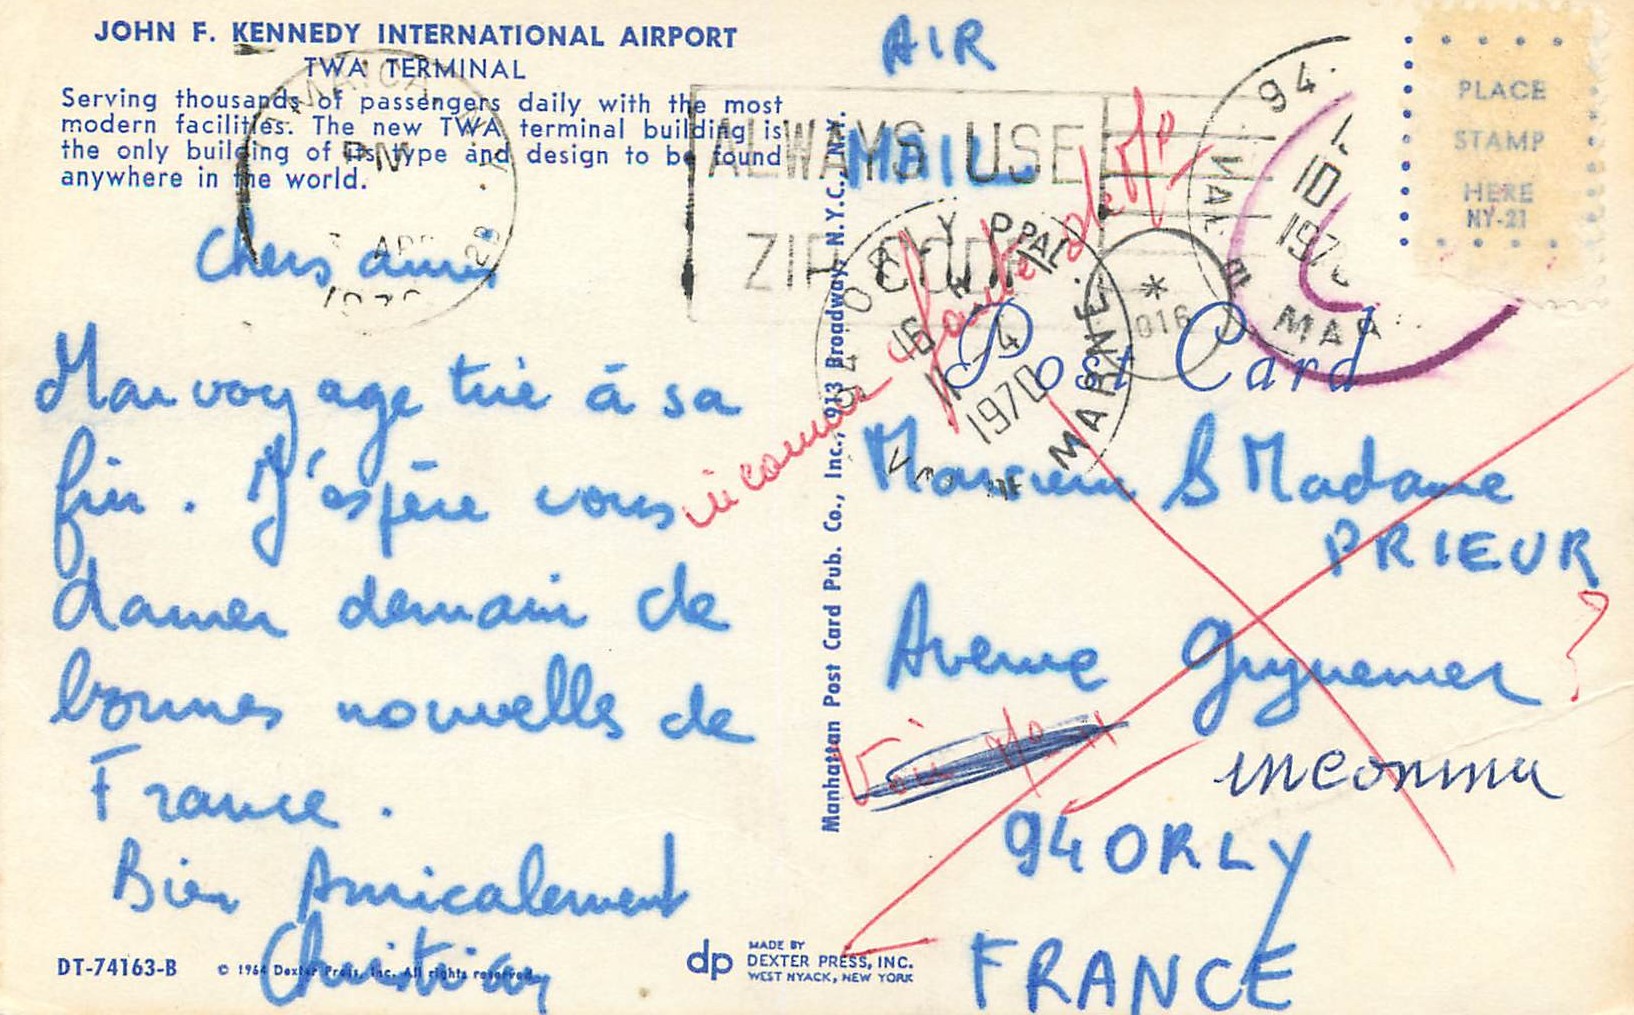 JOHN F. KENNEDY INTERNATIONAL AIRPORT
TWA TERMINAL
Serving thousands of passengers daily with the most
modern facilities. The new TWA terminal building is
the only building of its type and design to be found
anywhere in the world.
Chers amis
Mon voyage tire à sa
fin. J'espère vous
donner demain de
bonnes nouvelles de
France.
Bien Amicalement
Christian
DT-74163-B
© 1964 Dexter Press, Inc. All rights reserved
dp
MADE BY
DEXTER PRESS, INC.
WEST NYACK, NEW YORK
Manhattan Post Card Pub. Co., Inc., 913 Broadway, N.Y.C., N.Y.
AIR
MAIL
JAMAICA
PM
APR
ALWAYS USE
ZIP CODE
94 ORLY PPAL
16 H
11 -4
1970
MARNE
*
016
94
10
197
MAR
PLACE
STAMP
HERE
NY-21
Post Card
inconnu
Monsieur & Madame
PRIEUR
?
Avenue Guynemer
Voir
inconnu
94 ORLY
FRANCE